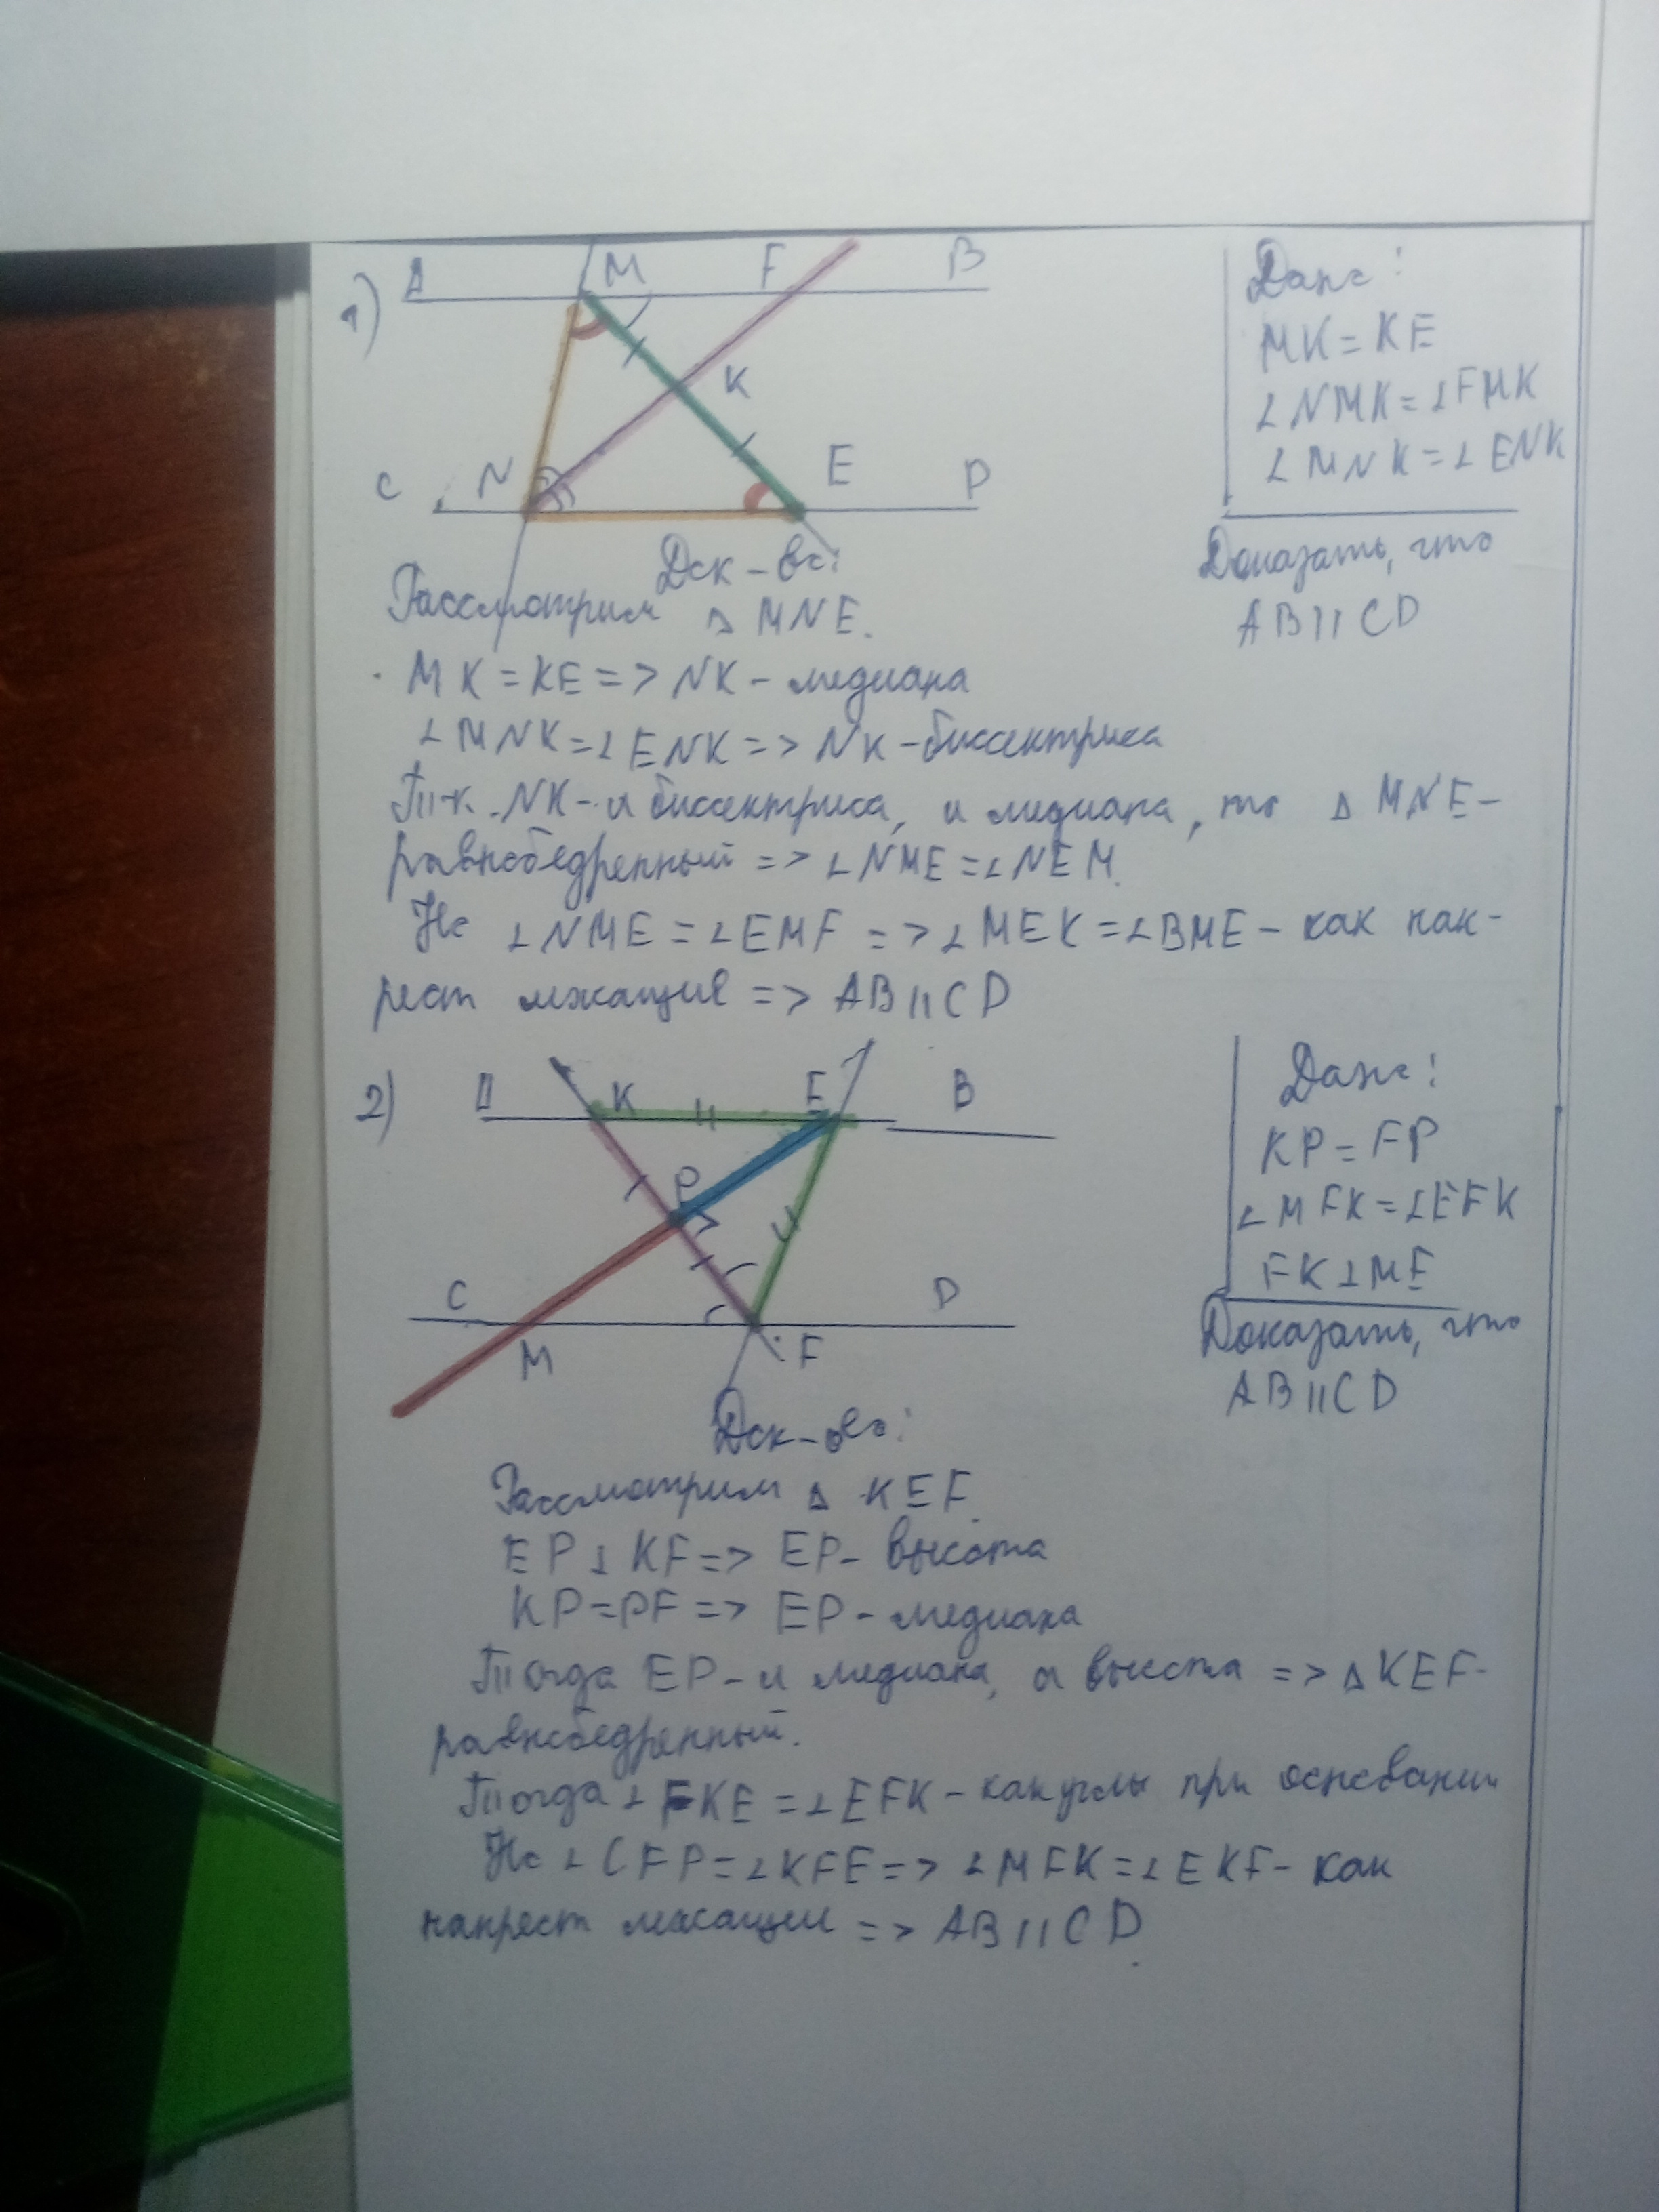 1)
A M F B
K
C N E D
Дано:
MK = KE
∠NMK = ∠FMK
∠MNK = ∠ENK
Доказать, что
AB || CD
Док-во:
Рассмотрим △ MNE.
MK = KE => NK - медиана
∠MNK = ∠ENK => NK - биссектриса
Т.к. NK - и биссектриса, и медиана, то △ MNE -
равнобедренный => ∠NME = ∠NEM.
Но ∠NME = ∠EMF => ∠MEK = ∠BME - как нак-
рест лежащие => AB || CD
2)
A K E B
P
C D
M F
Дано:
KP = FP
∠MFK = ∠EFK
FK ⊥ ME
Доказать, что
AB || CD
Док-во:
Рассмотрим △ KEF.
EP ⊥ KF => EP - высота
KP = PF => EP - медиана
Тогда EP - и медиана, и высота => △ KEF -
равнобедренный.
Тогда ∠FKE = ∠EFK - как углы при основании
Но ∠CFP = ∠KFE => ∠MFK = ∠EKF - как
накрест лежащие => AB || CD.